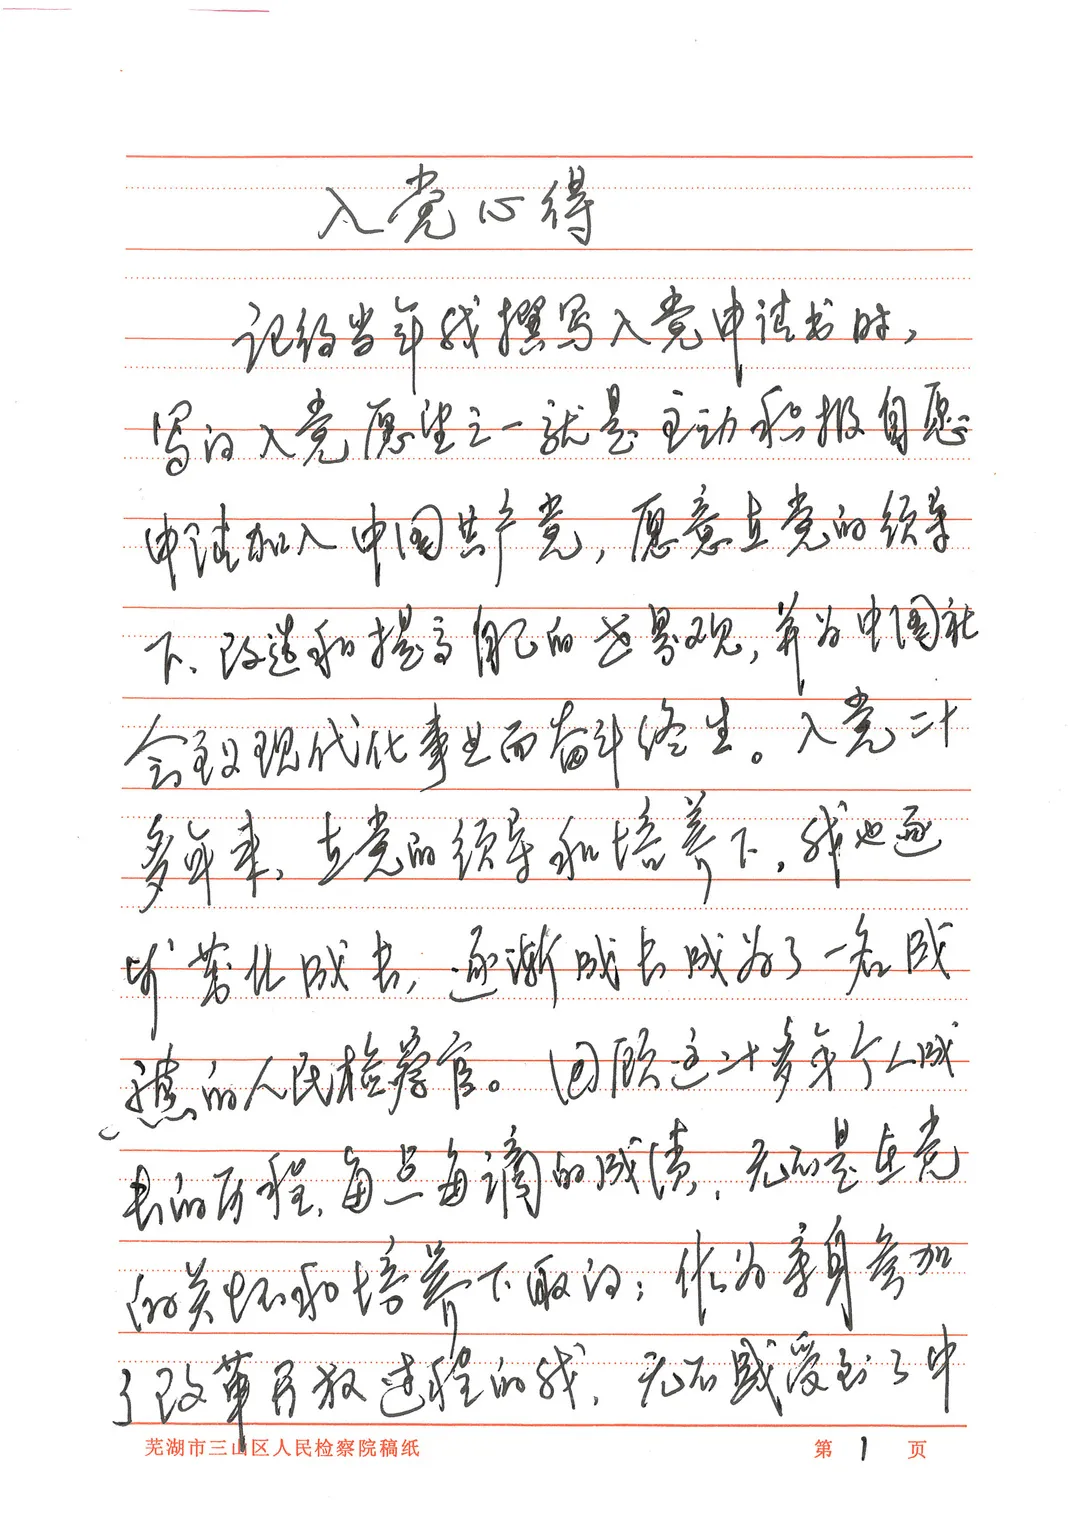 入党心得
记得当年我撰写入党申请书时，
写的入党愿望之一就是主动积极自愿
申请加入中国共产党，愿意在党的领导
下、改造和提高自己的世界观，并为中国社
会主义现代化事业而奋斗终生。入党二十
多年来，在党的领导和培养下，我也逐
步茁壮成长，逐渐成长成为了一名成
熟的人民检察官。回顾这二十多年个人成
长的历程，每点每滴的成绩，无不是在党
的关怀和培养下取的；作为亲身参加
了改革开放进程的我，无不感受到了中
芜湖市三山区人民检察院稿纸
第 1 页